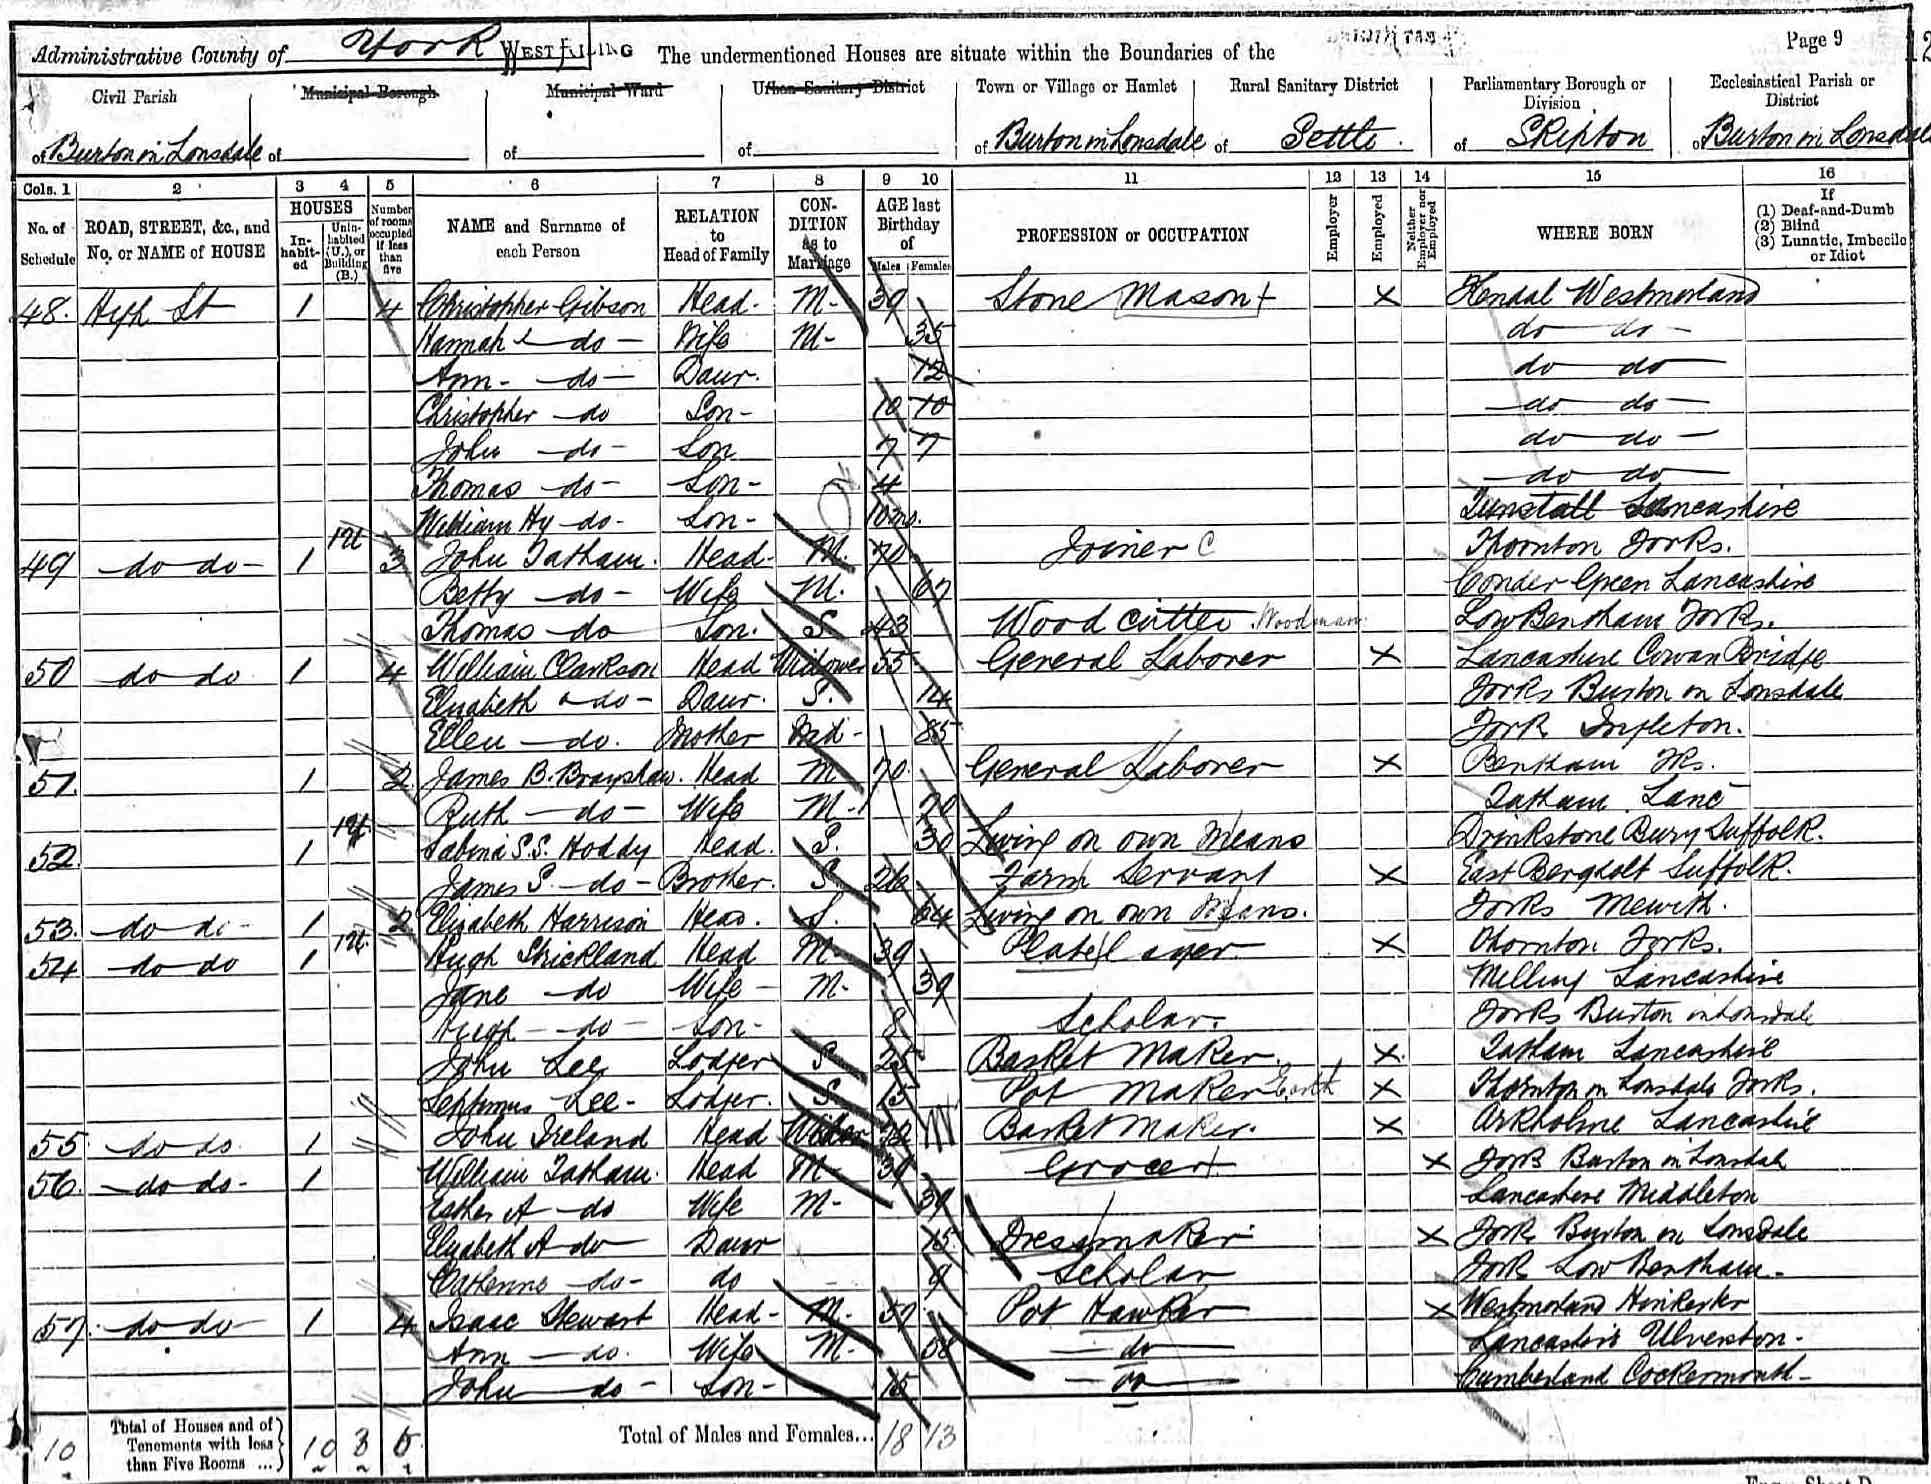 Administrative County of York WEST RIDING The undermentioned Houses are situate within the Boundaries of the Page 9
Civil Parish Municipal Borough Municipal Ward Urban Sanitary District Town or Village or Hamlet Rural Sanitary District Parliamentary Borough or Division Ecclesiastical Parish or District
of Burton in Lonsdale of of of of Burton in Lonsdale of Settle. of Skipton of Burton in Lonsdale
Cols. 1 2 3 4 5 6 7 8 9 10 11 12 13 14 15 16
No. of Schedule ROAD, STREET, &c., and No. or NAME of HOUSE HOUSES Inhabited Uninhabited (U.), or Building (B.) Number of rooms occupied if less than five NAME and Surname of each Person RELATION to Head of Family CONDITION as to Marriage AGE last Birthday of Males Females PROFESSION or OCCUPATION Employer Employed Neither Employer nor Employed WHERE BORN If (1) Deaf-and-Dumb (2) Blind (3) Lunatic, Imbecile or Idiot
48. High St 1 4 Christopher Gibson Head- M- 39 Stone Mason X Kendal Westmorland
Hannah do- Wife M- 35 do do-
Ann- do- Daur. 12 do do
Christopher do Son- 10 10 do do-
John do- Son 7 7 do do-
Thomas do- Son- 4 do do
William Hy do- Son- 10 mo. Tunstall Lancashire
49 do do- 1 1U 3 John Tatham. Head- M. 70 Joiner C Thornton Yorks.
Betty do- Wife M. 67 Conder Green Lancashire
Thomas do Son. S 43 Wood cutter Woodman Low Bentham Yorks.
50 do do 1 4 William Clarkson Head Widower 55 General Laborer X Lancashire Cowan Bridge
Elizabeth do- Daur. S. 14 Yorks Burton in Lonsdale
Ellen do. Mother Wid- 85 York Ingleton.
51. 1 2 James B. Brayshaw. Head M 70 General Laborer X Bentham Yks.
Ruth do- Wife M- 70 Tatham Lanc
52 1U 1 Sabina S.S. Hoddy Head. S. 30 Living on own Means Drinkstone Bury Suffolk.
James S. do- Brother. S. 26 Farm Servant X East Bergholt Suffolk.
53. do do- 1 2 Elizabeth Harrison Head. S. 64 Living on own Means. Yorks Mewith.
54 do do 1 1U Hugh Strickland Head M- 39 Plate Layer X Thornton Yorks.
Jane do Wife- M- 39 Melling Lancashire
Hugh- do- Son- 8 Scholar. Yorks Burton in Lonsdale
John Lee Lodger S 25 Basket Maker. X. Tatham Lancashire
Septimus Lee- Lodger. S 15 Pot Maker Earth X Thornton in Lonsdale Yorks.
55 do do. 1 John Ireland Head Basket Maker. X Arkholme Lancashire
56. do do- 1 William Tatham. Head M- 39 Grocer X York Burton in Lonsdale
Esther A do Wife M- 39 Lancashire Middleton
Elizabeth A do Daur 15 Dressmaker X York Burton in Lonsdale
Catherine do- do 9 Scholar York Low Bentham-
57. do do- 1 4 Isaac Stewart Head- M- Pot Hawker X Westmorland
Ann do. Wife M- 58 do Lancashire Ulverston-
John do- Son- 15 do Cumberland Cockermouth-
10 Total of Houses and of Tenements with less than Five Rooms ... 10 3 Total of Males and Females... 18 13